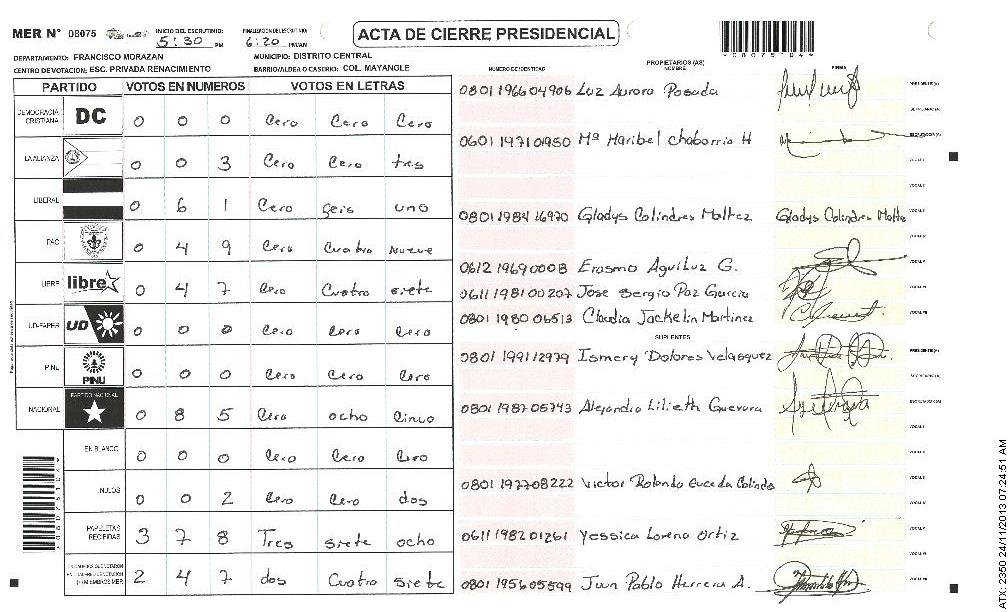 MER N° 08075
INICIO DEL ESCRUTINIO: 5:30 PM
FINALIZACION DE ESCRUTINIO: 6:20 PM/AM
ACTA DE CIERRE PRESIDENCIAL
DEPARTAMENTO: FRANCISCO MORAZAN
MUNICIPIO: DISTRITO CENTRAL
CENTRO DE VOTACION: ESC. PRIVADA RENACIMIENTO
BARRIO/ALDEA O CASERIO: COL. MAYANGLE
PARTIDO VOTOS EN NUMEROS VOTOS EN LETRAS
DEMOCRACIA CRISTIANA DC 0 0 0 Cero Cero Cero
LA ALIANZA 0 0 3 Cero Cero tres
LIBERAL 0 6 1 Cero seis uno
PAC 0 4 9 Cero Cuatro Nueve
LIBRE libre 0 4 7 Cero Cuatro siete
UD-FAPER UD 0 0 0 Cero Cero Cero
PINU PINU 0 0 0 Cero Cero Cero
NACIONAL PARTIDO NACIONAL 0 8 5 Cero ocho Cinco
EN BLANCO 0 0 0 Cero Cero Cero
NULOS 0 0 2 Cero Cero dos
PAPELETAS RECIBIDAS 3 7 8 Tres siete ocho
2 4 7 dos Cuatro siete
NUMERO DE IDENTIDAD PROPIETARIOS (AS) NOMBRE FIRMA
0801196604906 Luz Aurora Posada
0601197101950 Mª Maribel Chabarria H
0801198416970 Gladys Colindres Maltez Gladys Colindres Malte
0612196900008 Erasmo Aguiluz G.
0611198100207 Jose Sergio Paz Garcia
0801198006513 Claudia Jackelin Martinez
SUPLENTES
0801199112979 Ismery Dolores Velasquez
0801198705743 Alejandra Lilieth Guevara
0801197708222 Victor Rolando Euceda Colindo
0611198201261 Yessica Lorena Ortiz
0801195605599 Juan Pablo Herrera A.
ATX-2350 24/11/2013 07:24:51 AM